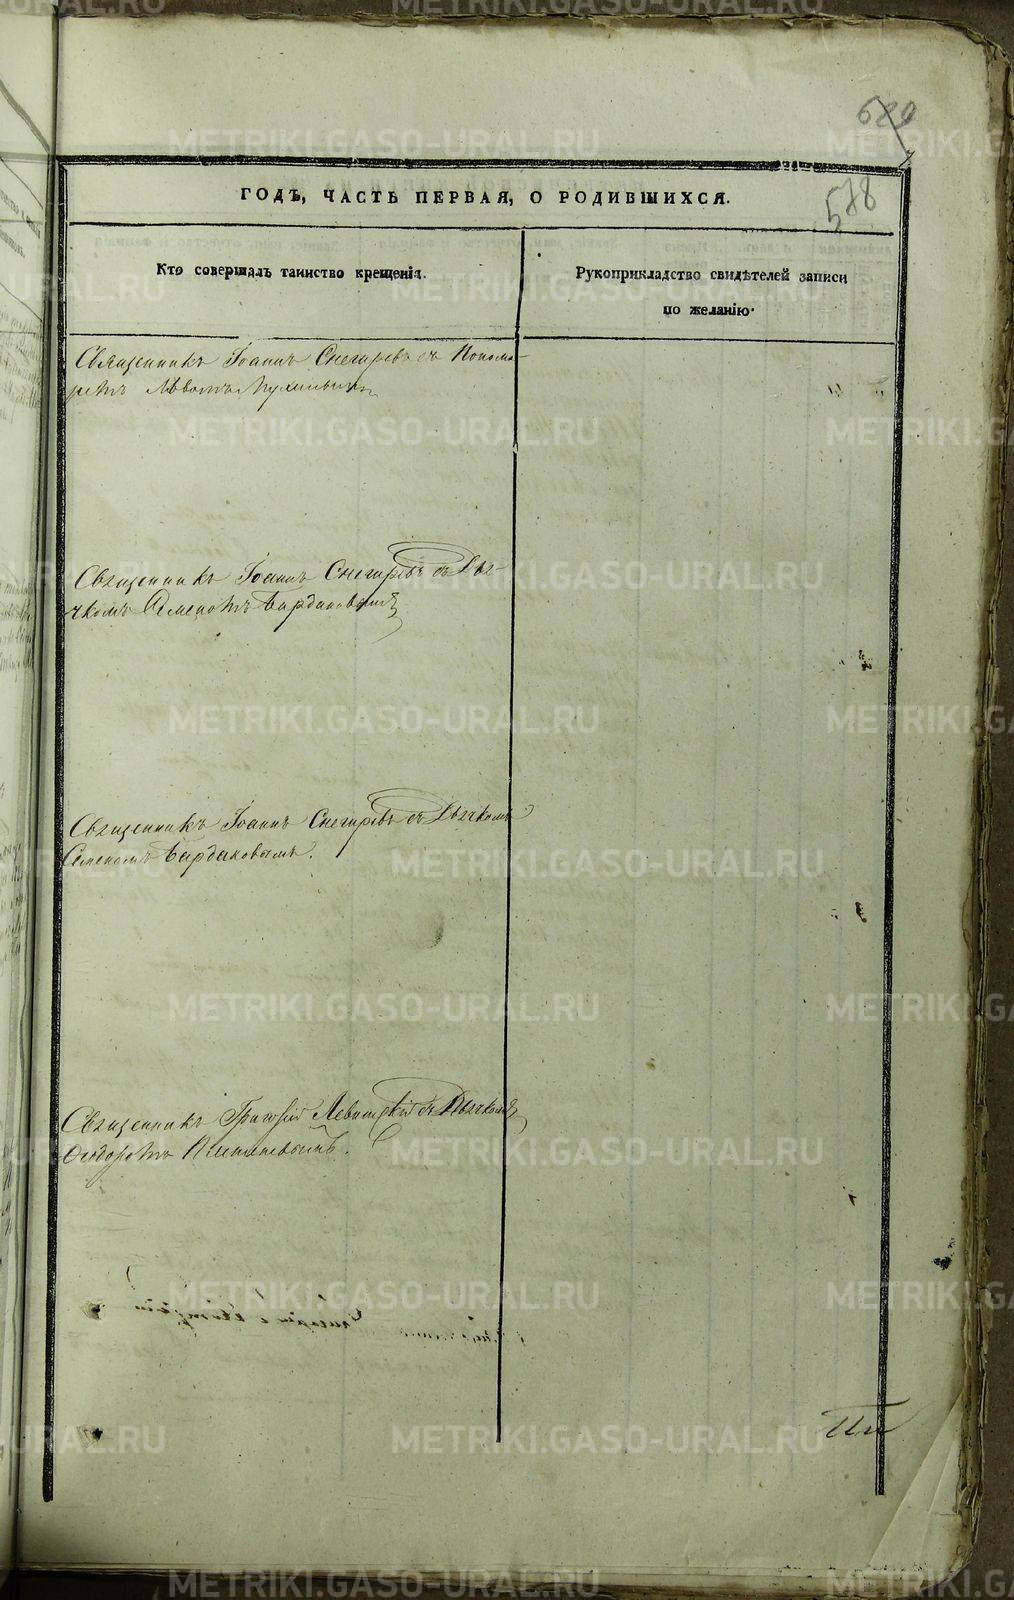 629
578
ГОДЪ, ЧАСТЬ ПЕРВАЯ, О РОДИВШИХСЯ.
Кто совершалъ таинство крещенія.
Рукоприкладство свидѣтелей записи
по желанію.
Священникъ Іоаннъ Снегиревъ съ Понома-
ремъ
Священникъ Іоаннъ Снегиревъ съ Дья-
чкомъ Семеномъ Бардаковымъ
Священникъ Іоаннъ Снегиревъ съ Дьячкомъ
Семеномъ Бардаковымъ.
Священникъ Григорій Левитскій съ Дьячкомъ
Ѳеодоромъ
METRIKI.GASO-URAL.RU